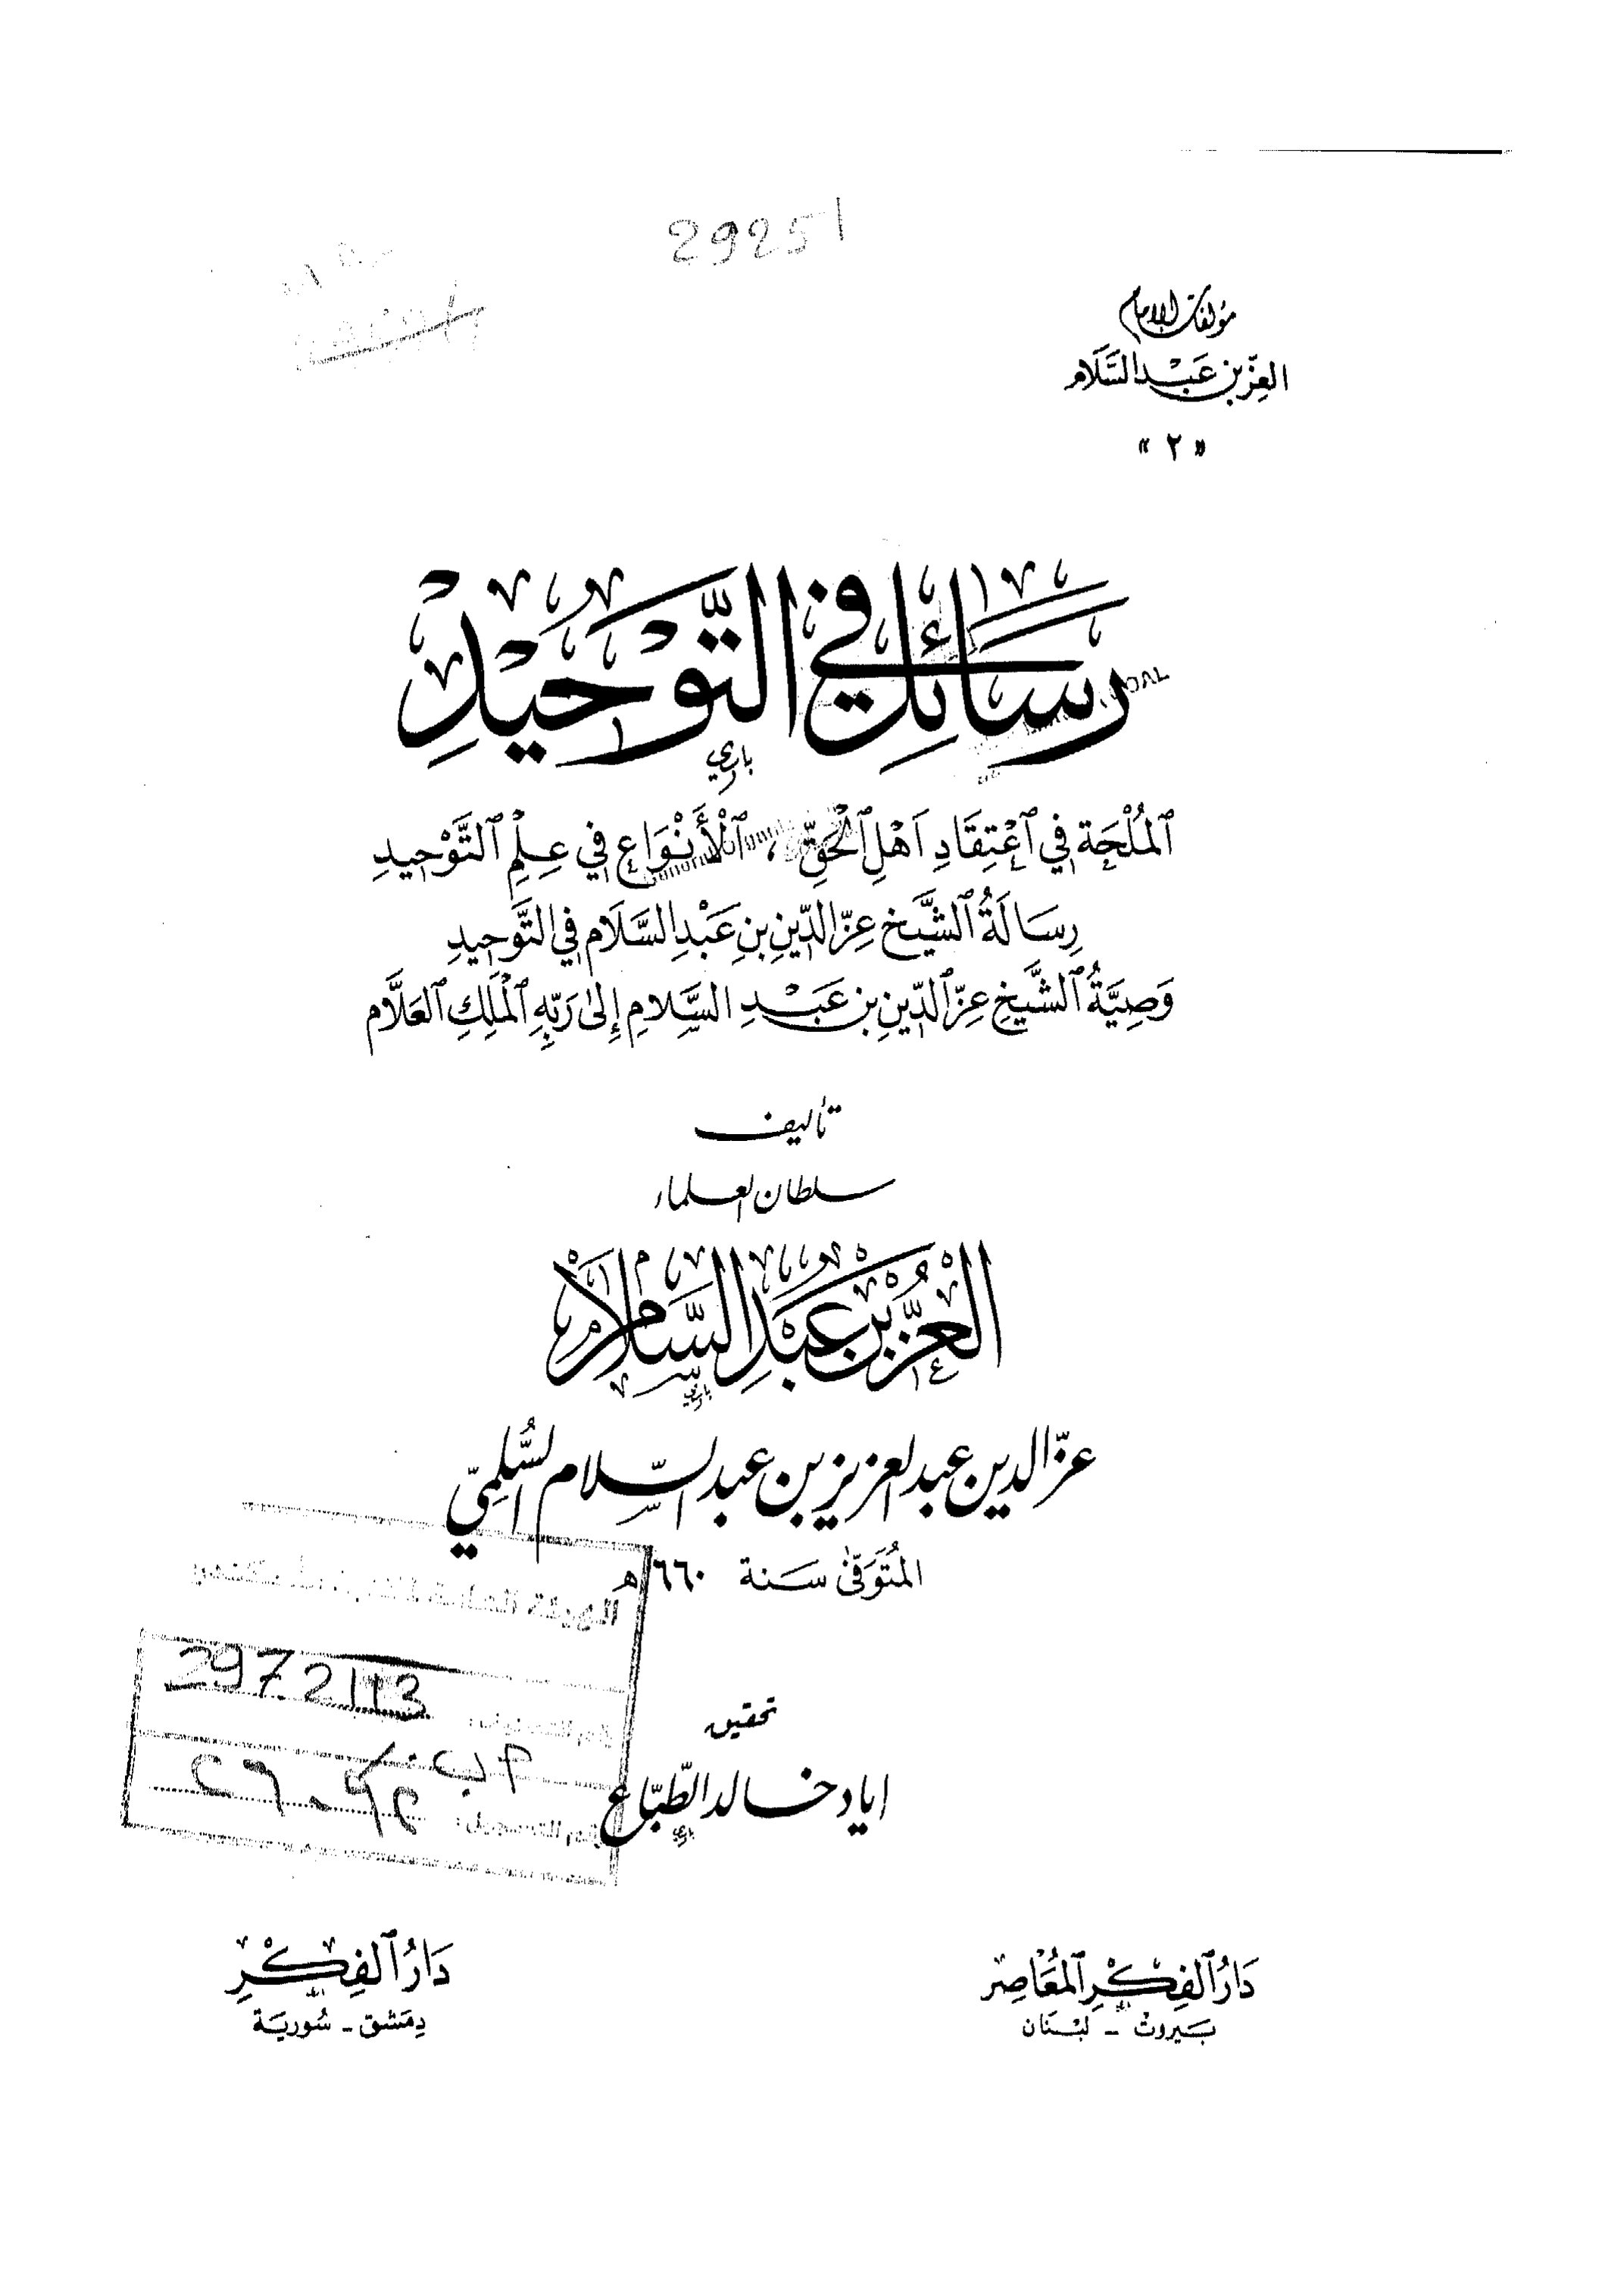 29251
مؤلفات الإمام
العِزّ بن عَبْد السَّلَام
« ٢ »
رَسَائِل في التَّوْحِيدِ
ٱلمُلْحَة في ٱعْتِقَادِ أَهْلِ ٱلْحَقِّ ، ٱلْأَنْوَاع في عِلْمِ ٱلتَّوْحِيدِ
رِسَالَةُ ٱلشَّيْخ عِزّ الدِّينِ بنِ عَبْدِ السَّلَام في التَّوحِيدِ
وَصِيَّةُ ٱلشَّيْخِ عِزّ ٱلدِّينِ بن عَبْدِ السَّلامِ إِلىٰ رَبِّهِ ٱلْمَلِكِ ٱلعَلَّام
تأليف
سلطان العلماء
العِزّ بْنِ عَبْدِ السَّلَامِ
عزّ الدين عبد العزيز بن عبد السّلام السُّلَمِيّ
المُتَوَفّىٰ سَنة ٦٦٠ هـ
2972113
تحقيق
اياد خالد الطّبّاع
دَارُ ٱلفِكْرِ ٱلمُعَاصِر
بَيروت - لبْنان
دَارُ ٱلفِكْرِ
دِمَشق - سُورِيَة